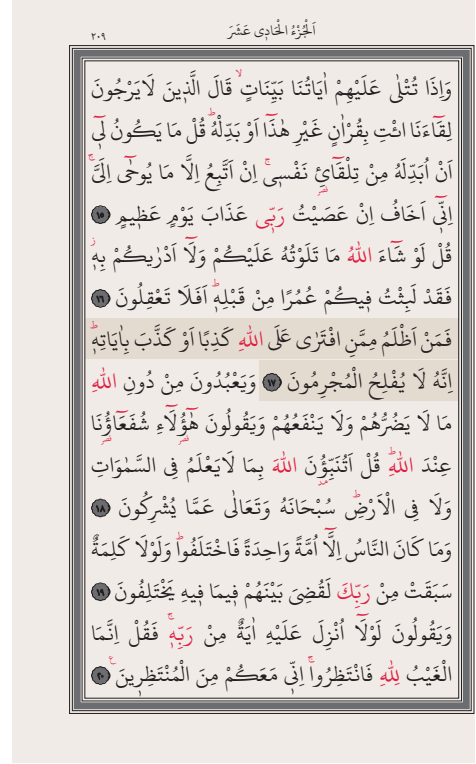 اَلْجُزْءُ الْحَادِى عَشَرَ
٢٠٩
وَاِذَا تُتْلٰى عَلَيْهِمْ اٰيَاتُنَا بَيِّنَاتٍۙ قَالَ الَّذ۪ينَ لَا يَرْجُونَ
لِقَٓاءَنَا ائْتِ بِقُرْاٰنٍ غَيْرِ هٰذَٓا اَوْ بَدِّلْهُۜ قُلْ مَا يَكُونُ ل۪ٓي
اَنْ اُبَدِّلَهُ مِنْ تِلْقَٓائِ۬ نَفْس۪يۚ اِنْ اَتَّبِعُ اِلَّا مَا يُوحٰٓى اِلَيَّۚ
اِنّ۪ٓي اَخَافُ اِنْ عَصَيْتُ رَبّ۪ي عَذَابَ يَوْمٍ عَظ۪يمٍ ١٥
قُلْ لَوْ شَٓاءَ اللّٰهُ مَا تَلَوْتُهُ عَلَيْكُمْ وَلَٓا اَدْرٰيكُمْ بِه۪ۘ
فَقَدْ لَبِثْتُ ف۪يكُمْ عُمُرًا مِنْ قَبْلِه۪ۜ اَفَلَا تَعْقِلُونَ ١٦
فَمَنْ اَظْلَمُ مِمَّنِ افْتَرٰى عَلَى اللّٰهِ كَذِبًا اَوْ كَذَّبَ بِاٰيَاتِه۪ۜ
اِنَّهُ لَا يُفْلِحُ الْمُجْرِمُونَ ١٧ وَيَعْبُدُونَ مِنْ دُونِ اللّٰهِ
مَا لَا يَضُرُّهُمْ وَلَا يَنْفَعُهُمْ وَيَقُولُونَ هٰٓؤُ۬لَٓاءِ شُفَعَٓاؤُ۬نَا
عِنْدَ اللّٰهِۜ قُلْ اَتُنَبِّؤُ۫نَ اللّٰهَ بِمَا لَا يَعْلَمُ فِي السَّمٰوَاتِ
وَلَا فِي الْاَرْضِۜ سُبْحَانَهُ وَتَعَالٰى عَمَّا يُشْرِكُونَ ١٨
وَمَا كَانَ النَّاسُ اِلَّٓا اُمَّةً وَاحِدَةً فَاخْتَلَفُواۜ وَلَوْلَا كَلِمَةٌ
سَبَقَتْ مِنْ رَبِّكَ لَقُضِيَ بَيْنَهُمْ ف۪يمَا ف۪يهِ يَخْتَلِفُونَ ١٩
وَيَقُولُونَ لَوْلَٓا اُنْزِلَ عَلَيْهِ اٰيَةٌ مِنْ رَبِّه۪ۚ فَقُلْ اِنَّمَا
الْغَيْبُ لِلّٰهِ فَانْتَظِرُواۚ اِنّ۪ي مَعَكُمْ مِنَ الْمُنْتَظِر۪ينَ۟ ٢٠